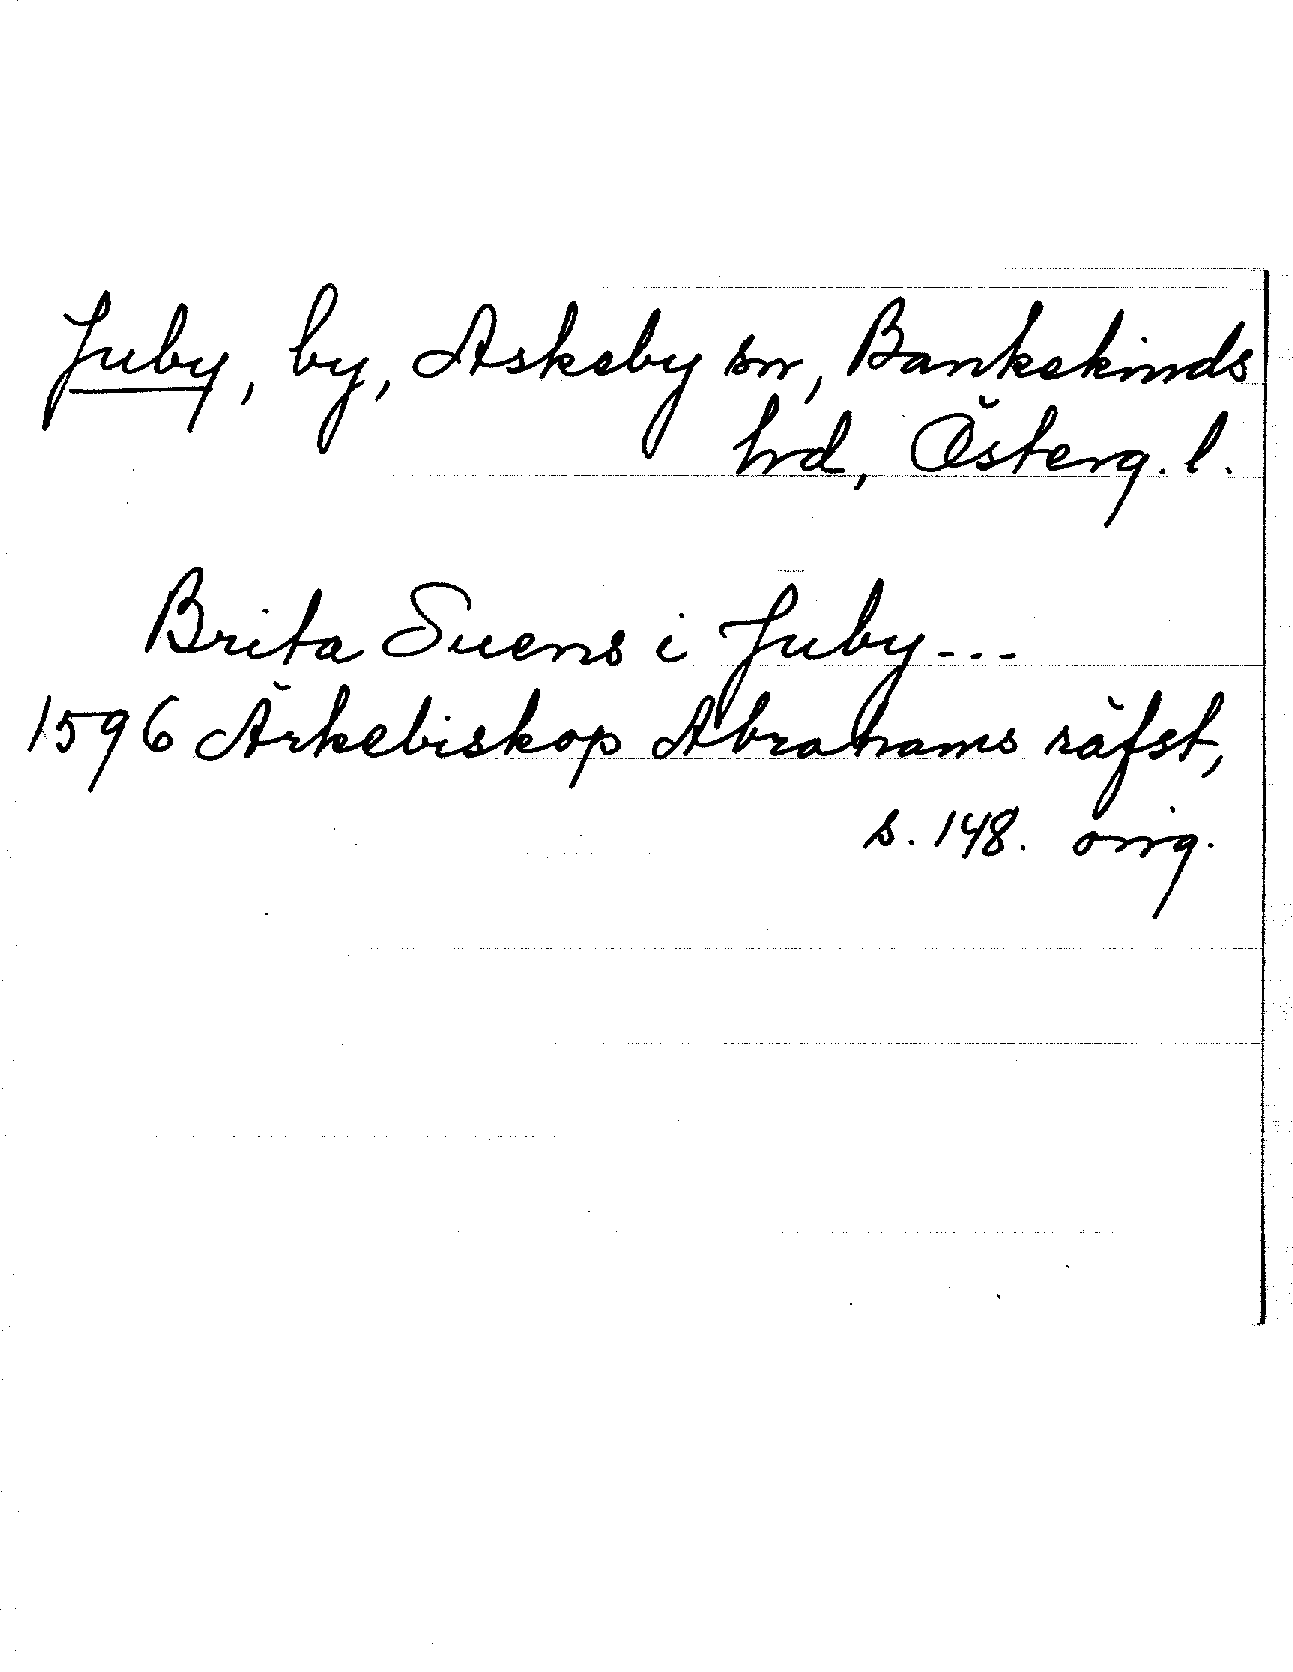 Juby, by, Askeby sn, Bankekinds
hrd, Österg. l.
Brita Suens i Juby---
1596 Ärkebiskop Abrahams räfst,
s. 148. orig.